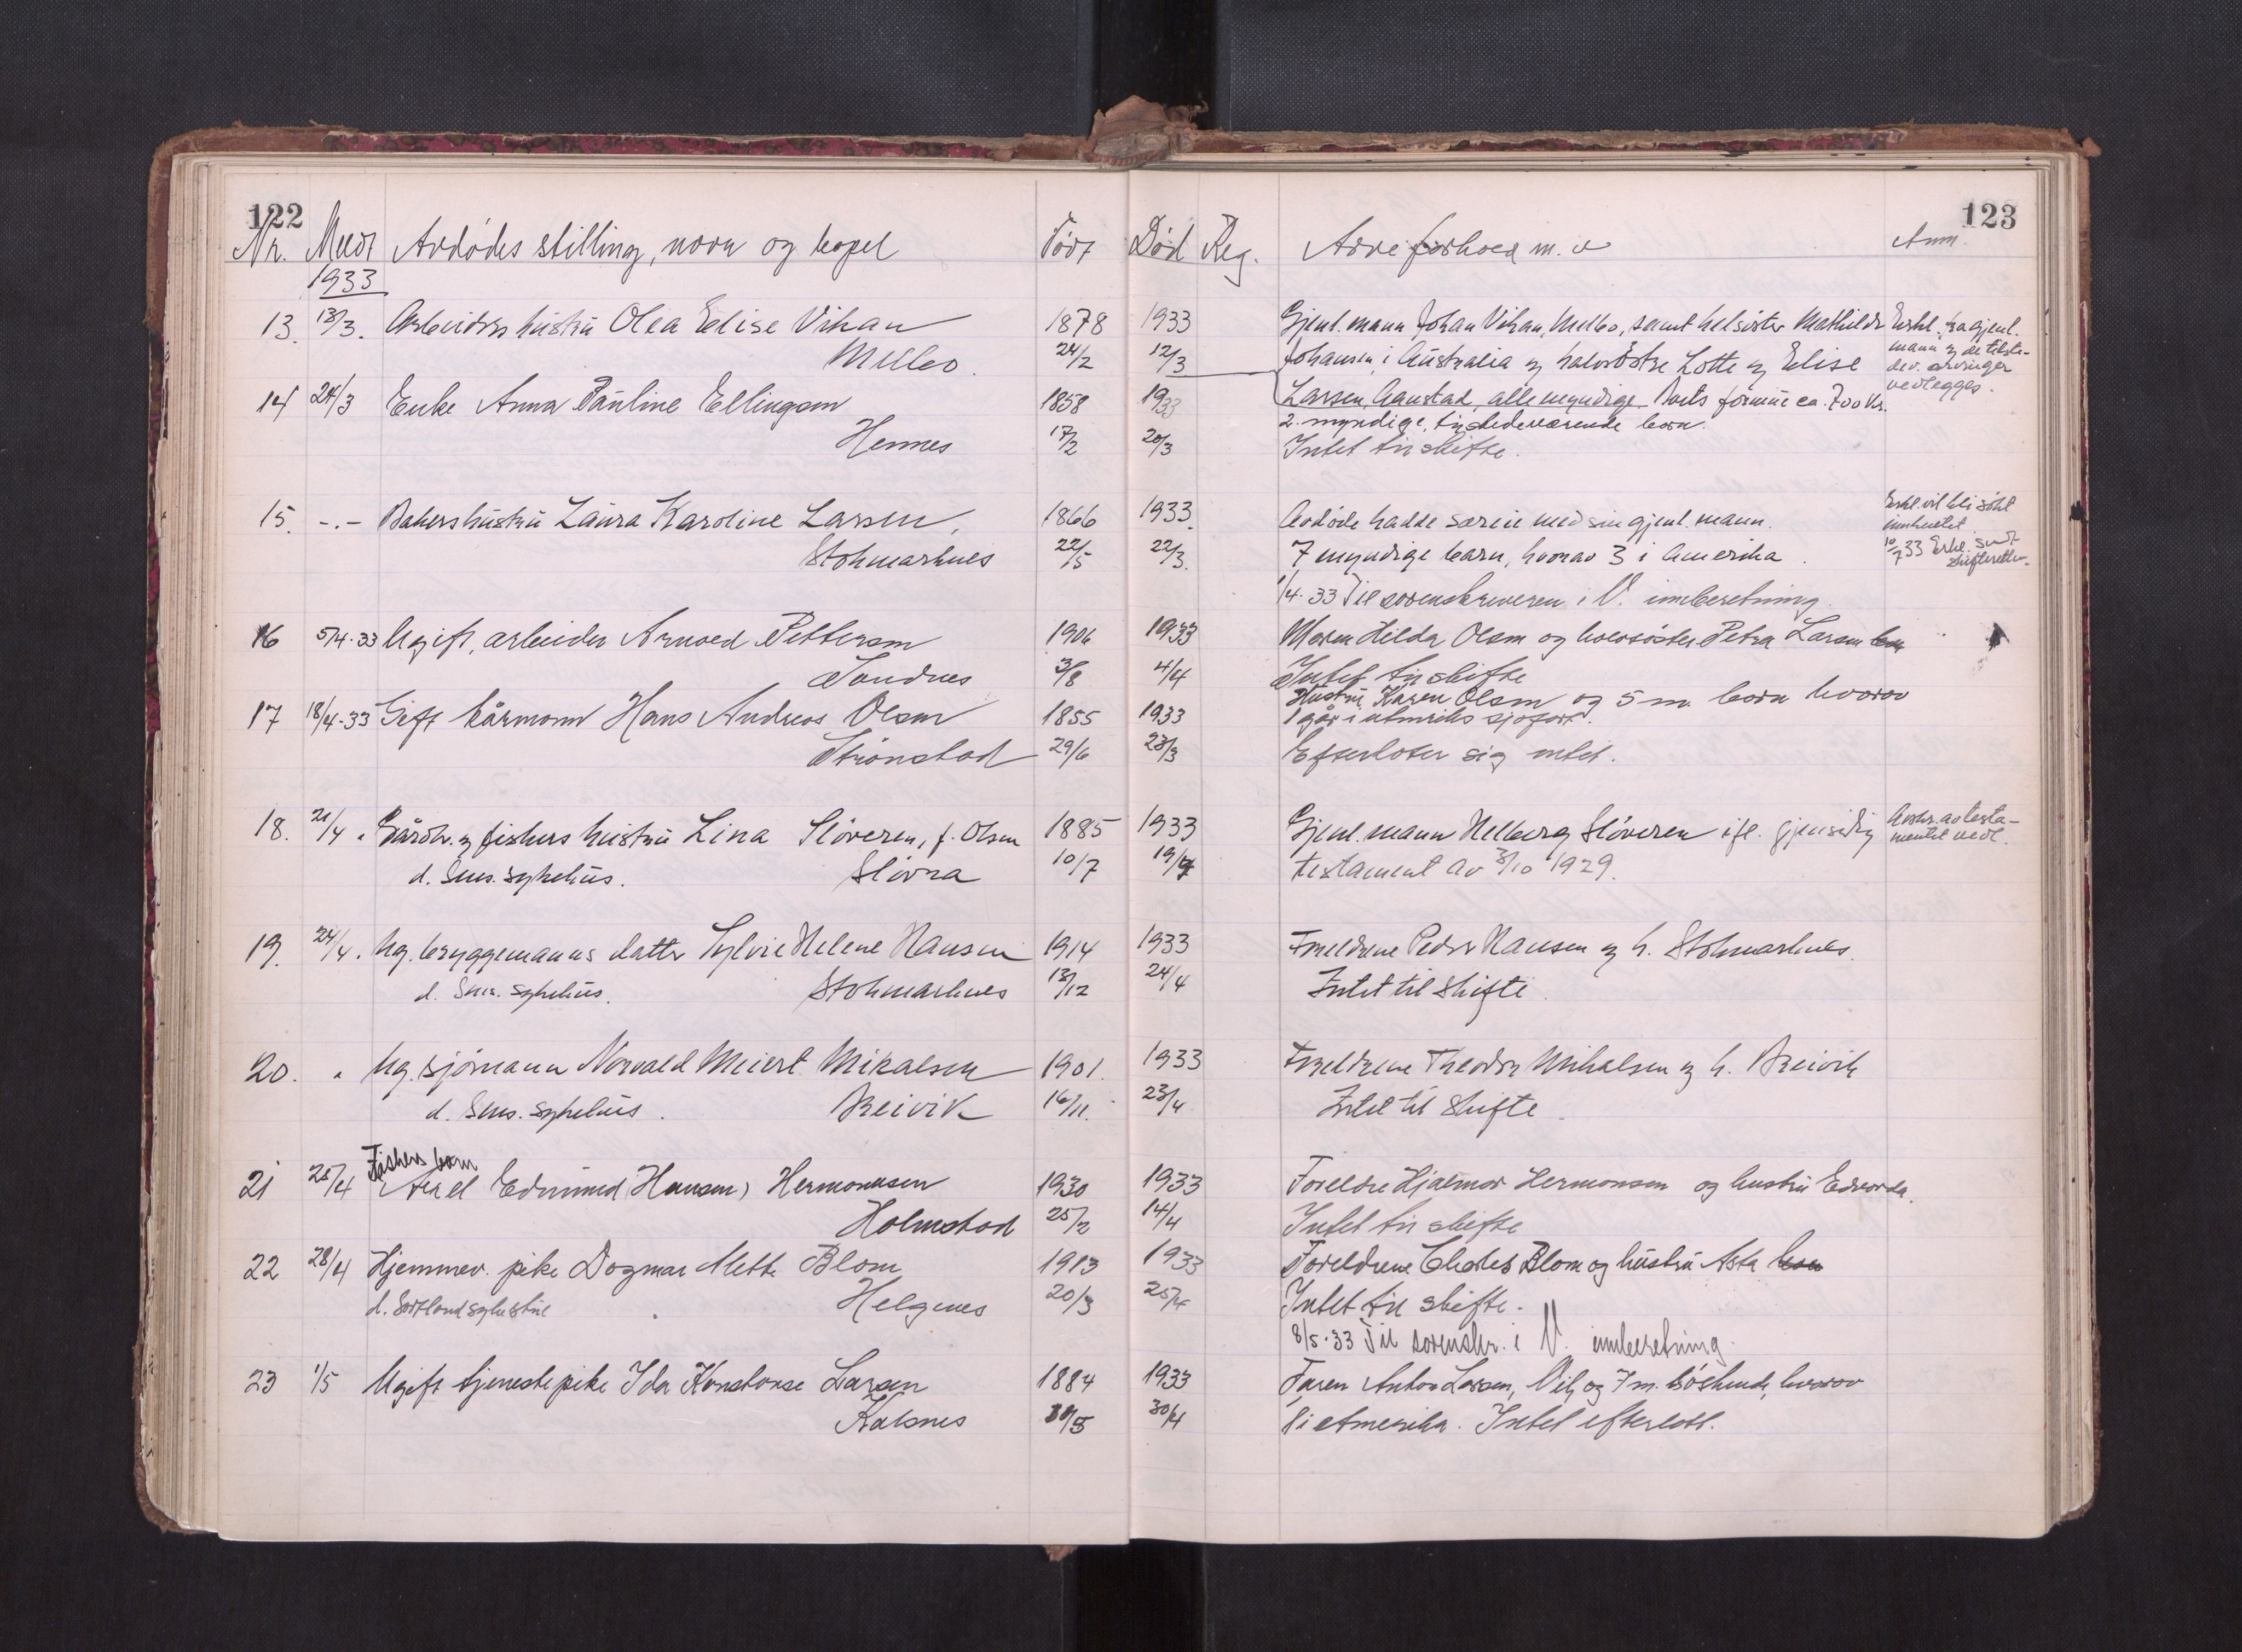 122
123
Nr. Meldt Avdødes stilling, navn og bopel Født Død Reg. Arveforhold m. v Anm.
1933
13. 13/3. Arbeiders hustru Olea Elise Vikan 1878 1933 Gjenl. mann Johan Vikan, Melbo, samt helsöster Mathilde Erkl. fra gjenl.
Melbo. 24/2 12/3 Johansen i Australia og halvsöstre Lotte og Elise mann og de tilste-
dev. arvinger
14 24/3 Enke Anna Pauline Ellingsen 1858 1933 Larsen, Aanstad, alle myndige. Boets formue ca. 700 kr. vedlegges.
2 myndige, tilstedeværende barn.
Hennes 17/2 20/3 Intet til skifte.
15. -.- Bakershustru Laura Karoline Larsen, 1866 1933. Avdøde hadde særeie med sin gjenl. mann. Erkl. vil bli søkt
innhentet
Stokmarknes 22/5 22/3. 7 myndige barn, hvorav 3 i Amerika. 10/7 33 Erkl. sendt
skifteretten.
1/4-33 Til sorenskriveren i V. innberetning.
16 5/4-33 Ugift, arbeider Arnold Pettersen 1906 1933 Moren Hilda Olsen og halvsöster Petra Larsen
Sandnes 3/8 4/4 Intet til skifte
17 18/4-33 Gift kårmann Hans Andreas Olsen 1855 1933 Hustru Karen Olsen og 5 m. barn hvorav
1 går i utenriks sjøfart.
Strønstad 29/6 28/3 Efterlater sig intet.
18. 21/4 " Gårdbr. og fiskers hustru Lina Slöveren, f. Olsen 1885 1933 Gjenl. mann Helberg Slöveren ifl. gjensidig Avskr. av testa-
mentet vedl.
d. Sens. sykehus. Slövra 10/7 19/4 testament av 3/10 1929.
19. 24/4. Ug. bryggemanns datter Sylvie Helene Hansen 1914 1933 Foreldrene Peder Hansen og h. Stokmarknes.
d. Sens. sykehus. Stokmarknes 13/12 24/4 Intet til skifte.
20. " Ug. sjömann Norvald Meiert Mikalsen 1901. 1933 Foreldrene Theodor Mikalsen og h. Breivik
d. Sens. sykehus. Breivik 16/11. 23/4 Intet til skifte.
Fiskers barn
21 25/4 Axel Edmund (Hansen) Hermonsen 1930 1933 Foreldre Hjalmar Hermonsen og hustru Edvarda.
Holmstad 25/2 14/4 Intet til skifte
22 28/4 Hjemmev. pike Dagmar Mette Blom 1913 1933 Foreldrene Charles Blom og hustru Asta
d. Sortland sykestue Helgenes 20/3 25/4 Intet til skifte.
8/5-33 Til sorenskr. i V. innberetning.
23 1/5 Ugift tjenestepike Ida Konstanse Larsen 1884 1933 Faren Anton Larsen, Vik, og 7 m. söskende, hvorav
Kalsnes 30/4 1 i Amerika. Intet efterlatt.